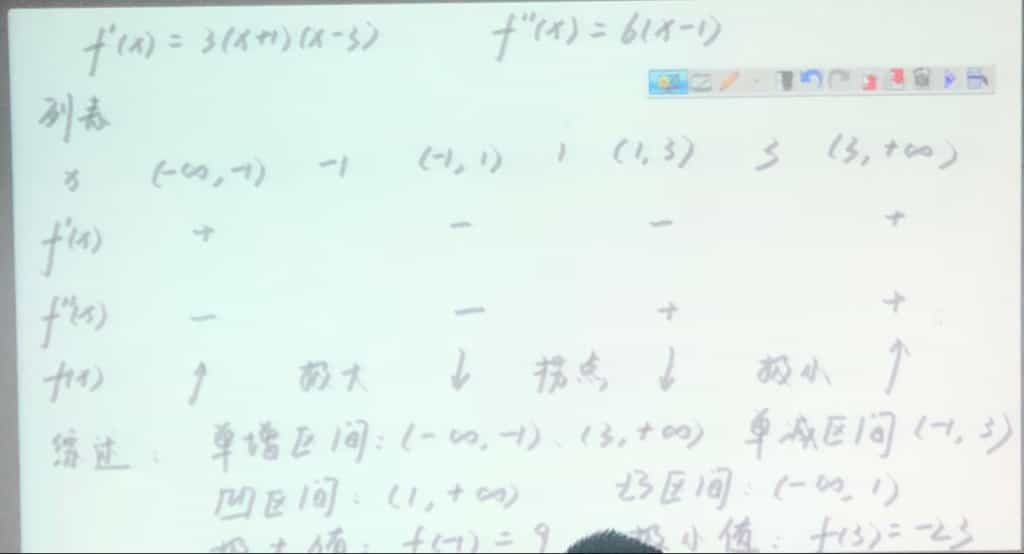 f'(x) = 3(x+1)(x-3) f''(x) = 6(x-1)
列表
x (-∞,-1) -1 (-1,1) 1 (1,3) 3 (3,+∞)
f'(x) + - - +
f''(x) - - + +
f(x) ↑ 极大 ↓ 拐点 ↓ 极小 ↑
综述: 单增区间:(-∞,-1)、(3,+∞) 单减区间(-1,3)
凹区间:(1,+∞) 凸区间:(-∞,1)
极大值: f(-1)=9 极小值: f(3)=-23